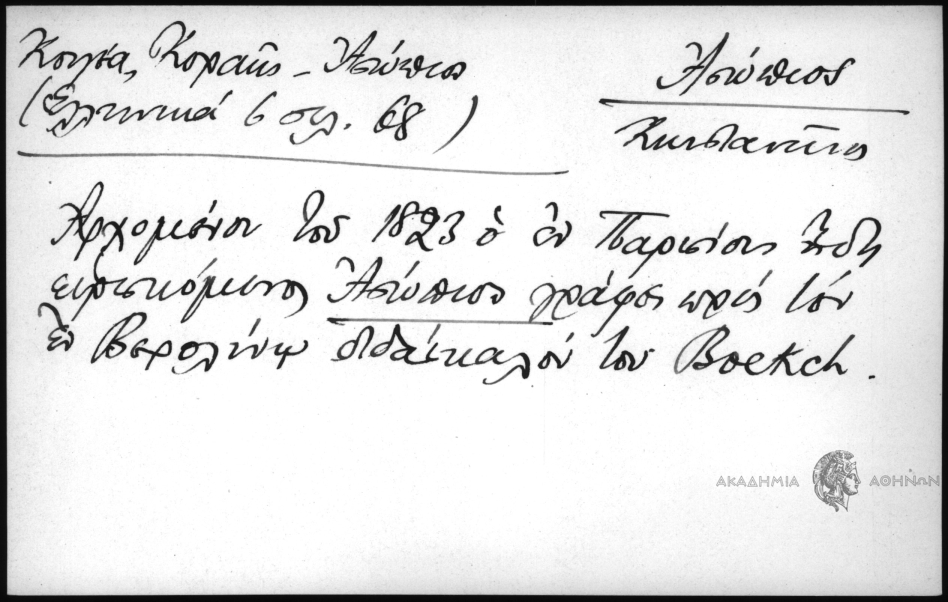 Κουγέα, Κοραῆς - Ἀσώπιος
(Ἑλληνικά 6 σελ. 68)
Ἀσώπιος
Κωνσταντῖνος
Ἀρχομένου τοῦ 1823 ὁ ἐν Παρισίοις ἤδη
εὑρισκόμενος Ἀσώπιος γράφει πρὸς τὸν
ἐν Βερολίνῳ διδάσκαλόν του Boekch.
ΑΚΑΔΗΜΙΑ ΑΘΗΝΩΝ